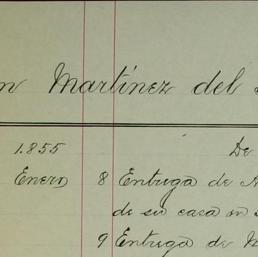 n Martínez del
1.855 De
Enero 8 Entrega de
de su casa en
9 Entrega de